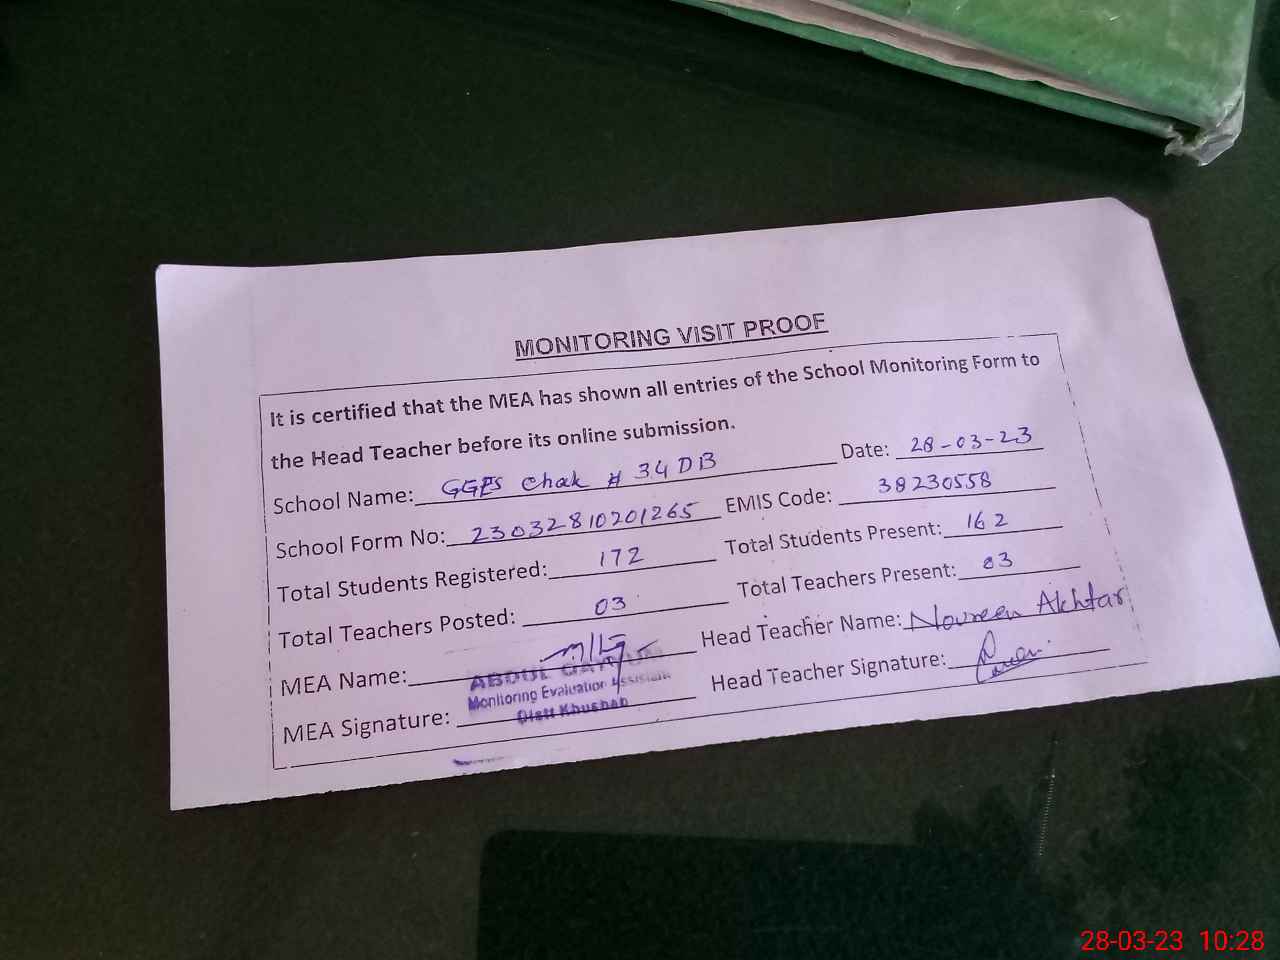 MONITORING VISIT PROOF
It is certified that the MEA has shown all entries of the School Monitoring Form to
the Head Teacher before its online submission.
School Name: GGES Chak # 34 DB Date: 28-03-23
School Form No: 23032810201265 EMIS Code: 38230558
Total Students Registered: 172 Total Students Present: 162
Total Teachers Posted: 03 Total Teachers Present: 03
MEA Name: Head Teacher Name: Noureen Akhtar
ABDUL QAYYUM
Monitoring Evaluation Assistant
MEA Signature: Distt Khushab Head Teacher Signature:
28-03-23 10:28